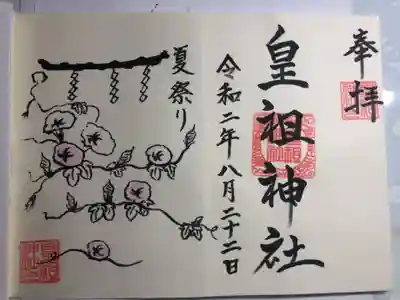 奉拝
皇祖神社
令和二年八月二十二日
夏祭り